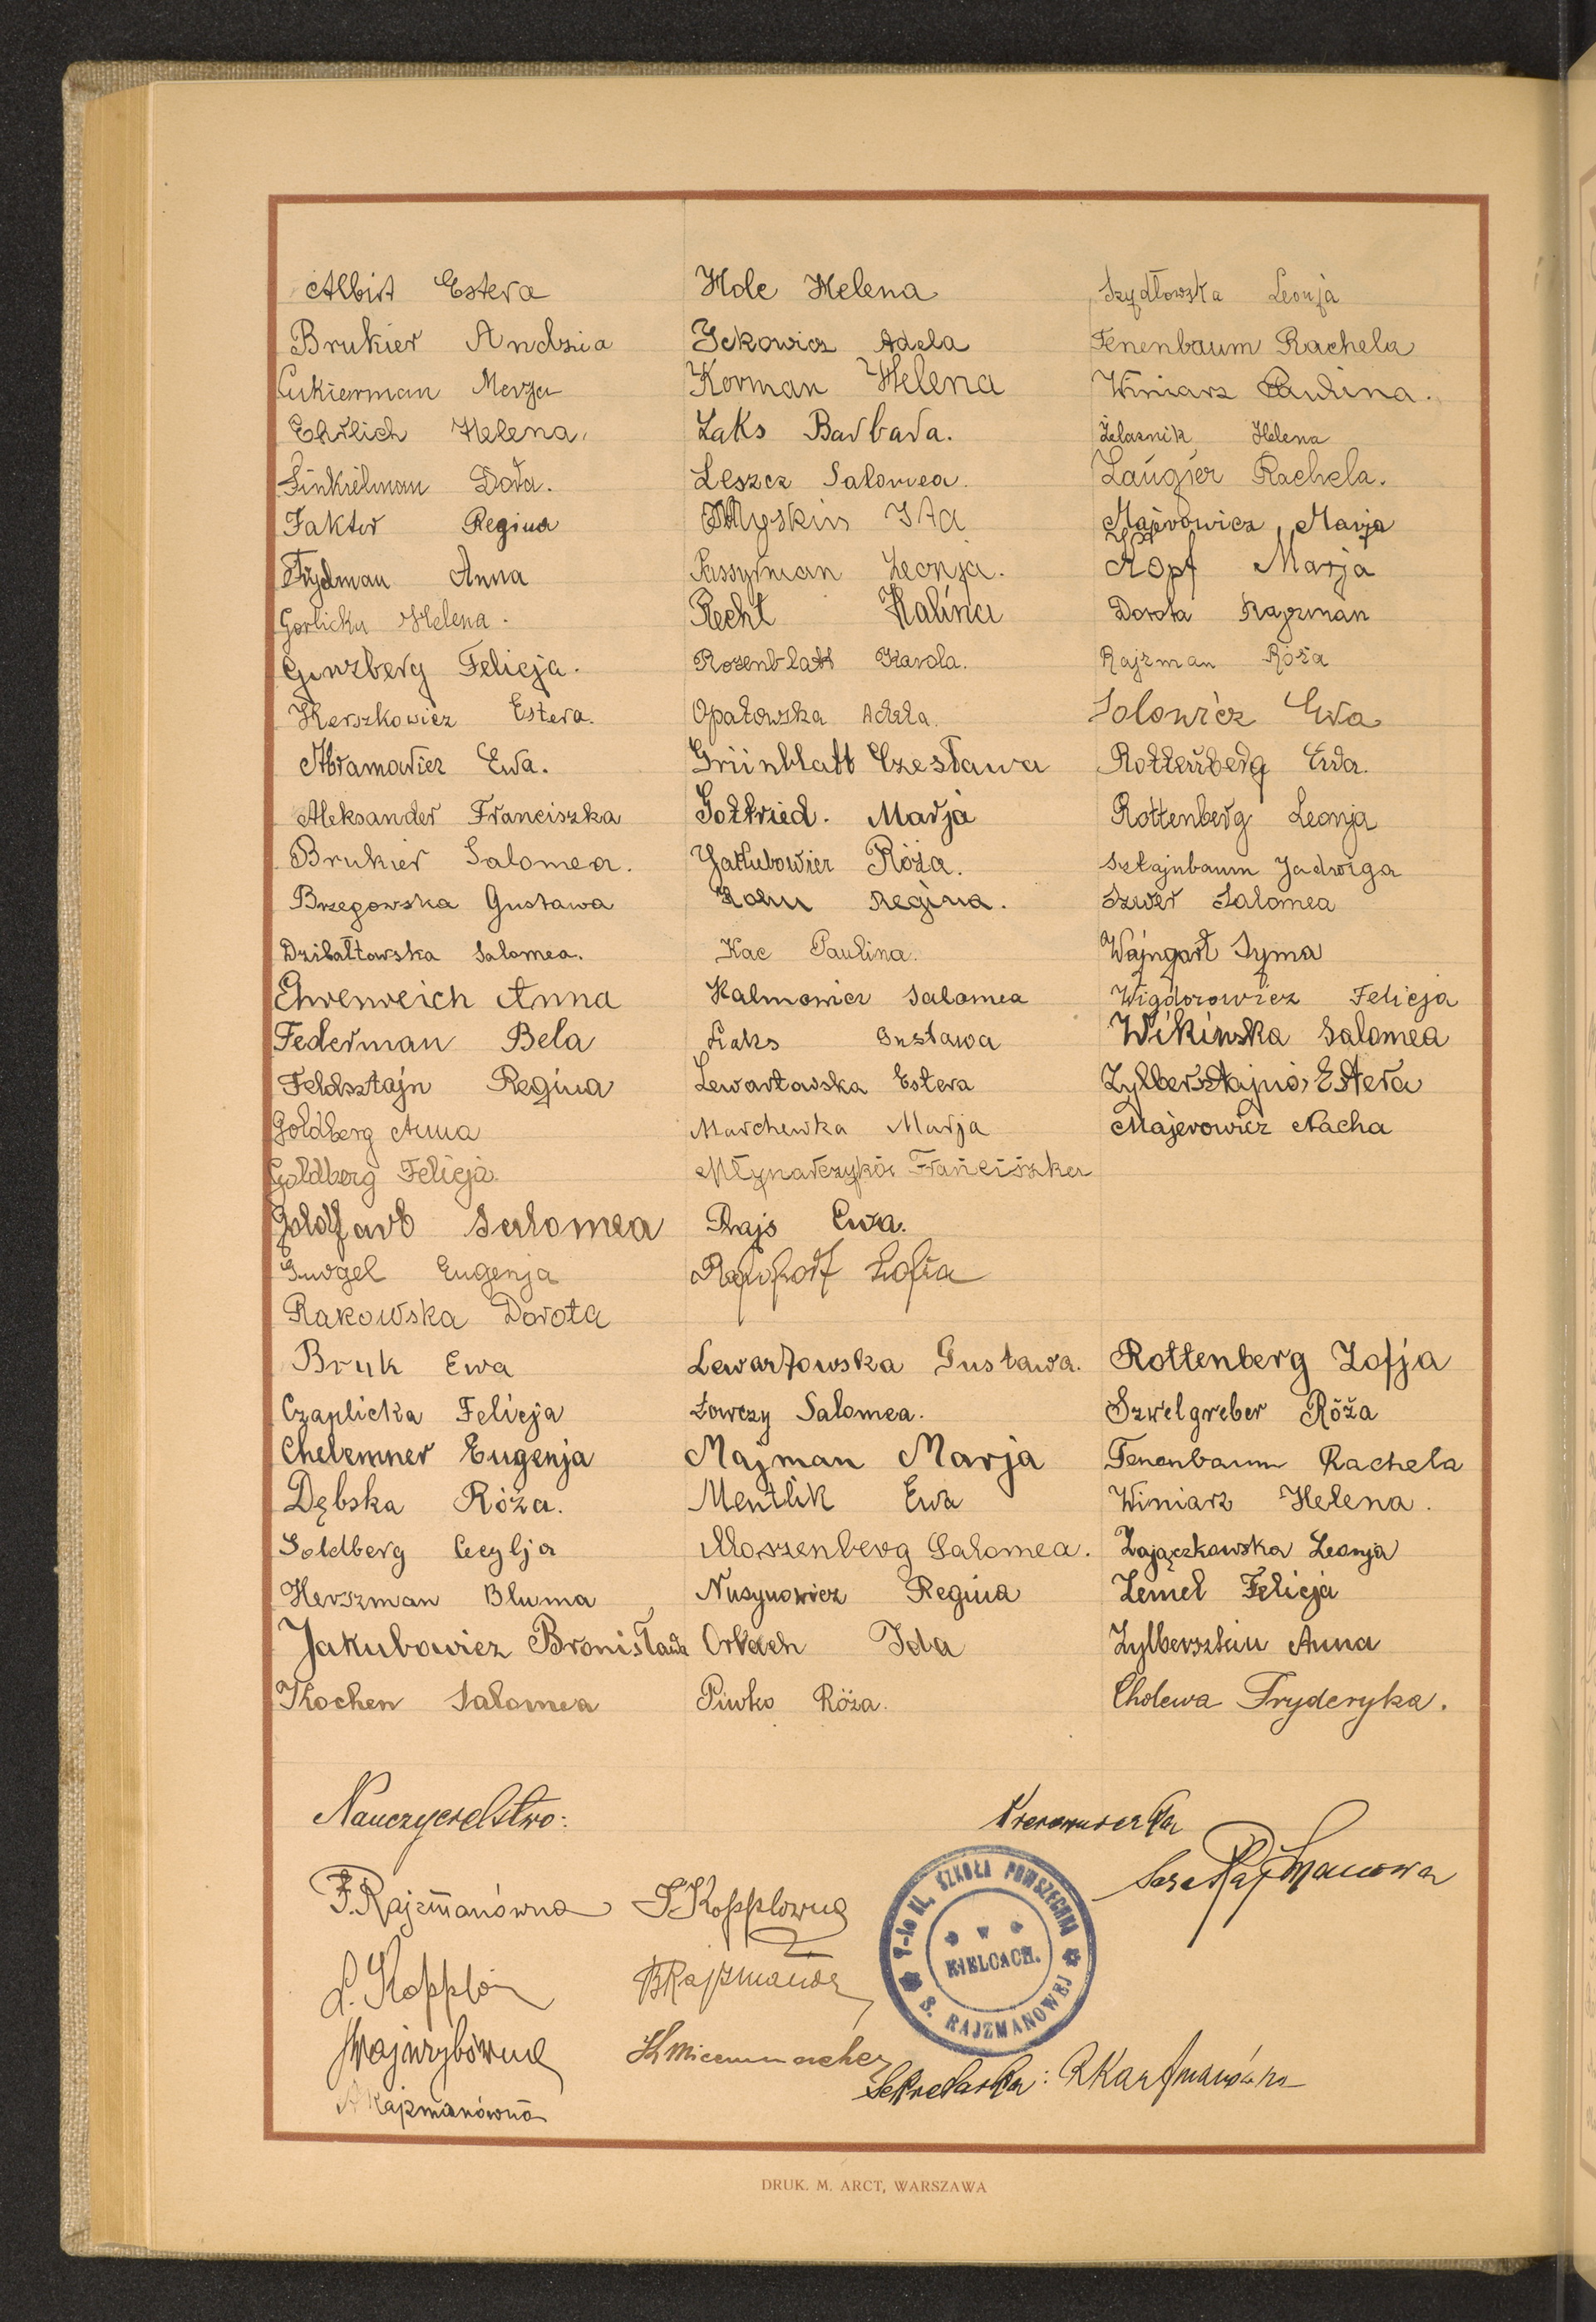 Albirt Estera
Brukier Andzia
Cukierman Merja
Ehrlich Helena.
Finkielman Dora.
Faktor Regina
Frydman Anna
Gorlicka Helena.
Ginzberg Felicja.
Herszkowicz Estera.
Abramowicz Ewa.
Aleksander Franciszka
Brukier Salomea.
Brzegowska Gustawa
Dzibałtowska Salomea.
Ehrenreich Anna
Federman Bela
Feldsztajn Regina
Goldberg Anna
Goldberg Felicja.
Goldfarb Salomea
Gurgel Eugenja
Rakowska Dorota
Bruk Ewa
Czaplicka Felicja
Chelemner Eugenja
Dębska Róża.
Goldberg Cecylja
Herszman Bluma
Jakubowicz Bronisława
Kochen Salomea
Hole Helena
Ickowicz Adela
Korman Helena
Laks Barbara.
Leszcz Salomea.
Myskin Ita
Passyrman Leonja.
Recht Halina
Rozenblatt Karola.
Opatowska Adela.
Grünblatt Czesława
Gotfried. Marja
Jakubowicz Róża.
Kohn Regina.
Kac Paulina.
Kalmowicz Salomea
Laks Gustawa
Lewartowska Estera
Marchewka Marja
Młynarczyk Franciszka
Rajs Ewa.
Rapoport Zofia
Lewartowska Gustawa.
Łowczy Salomea.
Majman Marja
Mentlik Ewa
Moszenberg Salomea.
Nusynowicz Regina
Orbach Ida
Piwko Róża.
Szydłowska Leonja
Tenenbaum Rachela
Winiarz Paulina.
Żelaznik Helena
Laugier Rachela.
Majerowicz Marja
Kopf Marja
Dorota Rajzman
Rajzman Róża
Solowicz Ewa
Rottenberg Ewa.
Rottenberg Leonja
Sztajnbaum Jadwiga
Szwer Salomea
Wajngart Syma
Wigdorowicz Felicja
Wikińska Salomea
Zylbersztajn Estera
Majerowicz Nacha
Rottenberg Zofja
Szwelgreber Róża
Tenenbaum Rachela
Winiarz Helena.
Zajączkowska Leonja
Zemel Felicja
Zylbersztein Anna
Cholewa Fryderyka.
Nauczycielstwo:
F. Rajzmanówna
S. Kopplowna
L. Kopplo
BRajzmanow
A Rajzmanówna
Kierowniczka
Sara Rajzmanowa
7-io kl. SZKOŁA POWSZECHNA
w
KIELCACH.
S. RAJZMANOWEJ
Sekretarka: R Kaufmanówna
DRUK. M. ARCT, WARSZAWA